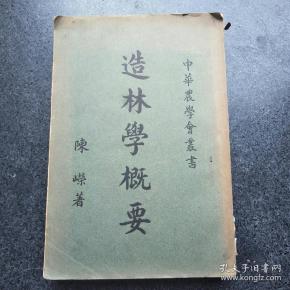 中華農學會叢書
造林學概要
陳嶸著
孔夫子旧书网